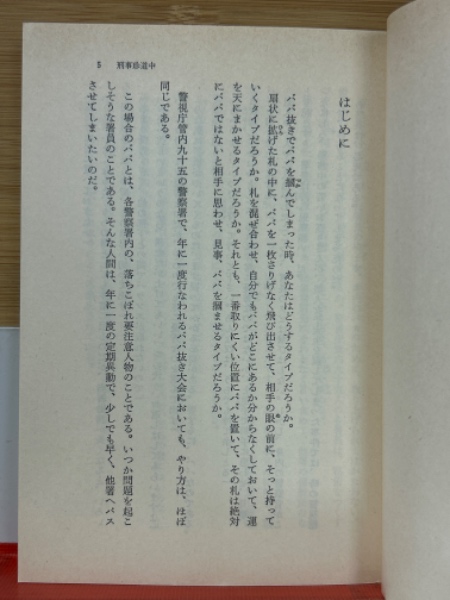 5　刑事珍道中
はじめに
ババ抜きでババを摑んでしまった時、あなたはどうするタイプだろうか。
扇状に拡げた札の中に、ババを一枚さりげなく飛び出させて、相手の眼の前に、そっと持って
いくタイプだろうか。札を混ぜ合わせ、自分でもババがどこにあるか分からなくしておいて、運
を天にまかせるタイプだろうか。それとも、一番取りにくい位置にババを置いて、その札は絶対
にババではないと相手に思わせ、見事、ババを摑ませるタイプだろうか。
警視庁管内九十五の警察署で、年に一度行なわれるババ抜き大会においても、やり方は、ほぼ
同じである。
この場合のババとは、各警察署内の、落ちこぼれ要注意人物のことである。いつか問題を起こ
しそうな署員のことである。そんな人間は、年に一度の定期異動で、少しでも早く、他署へパス
させてしまいたいのだ。